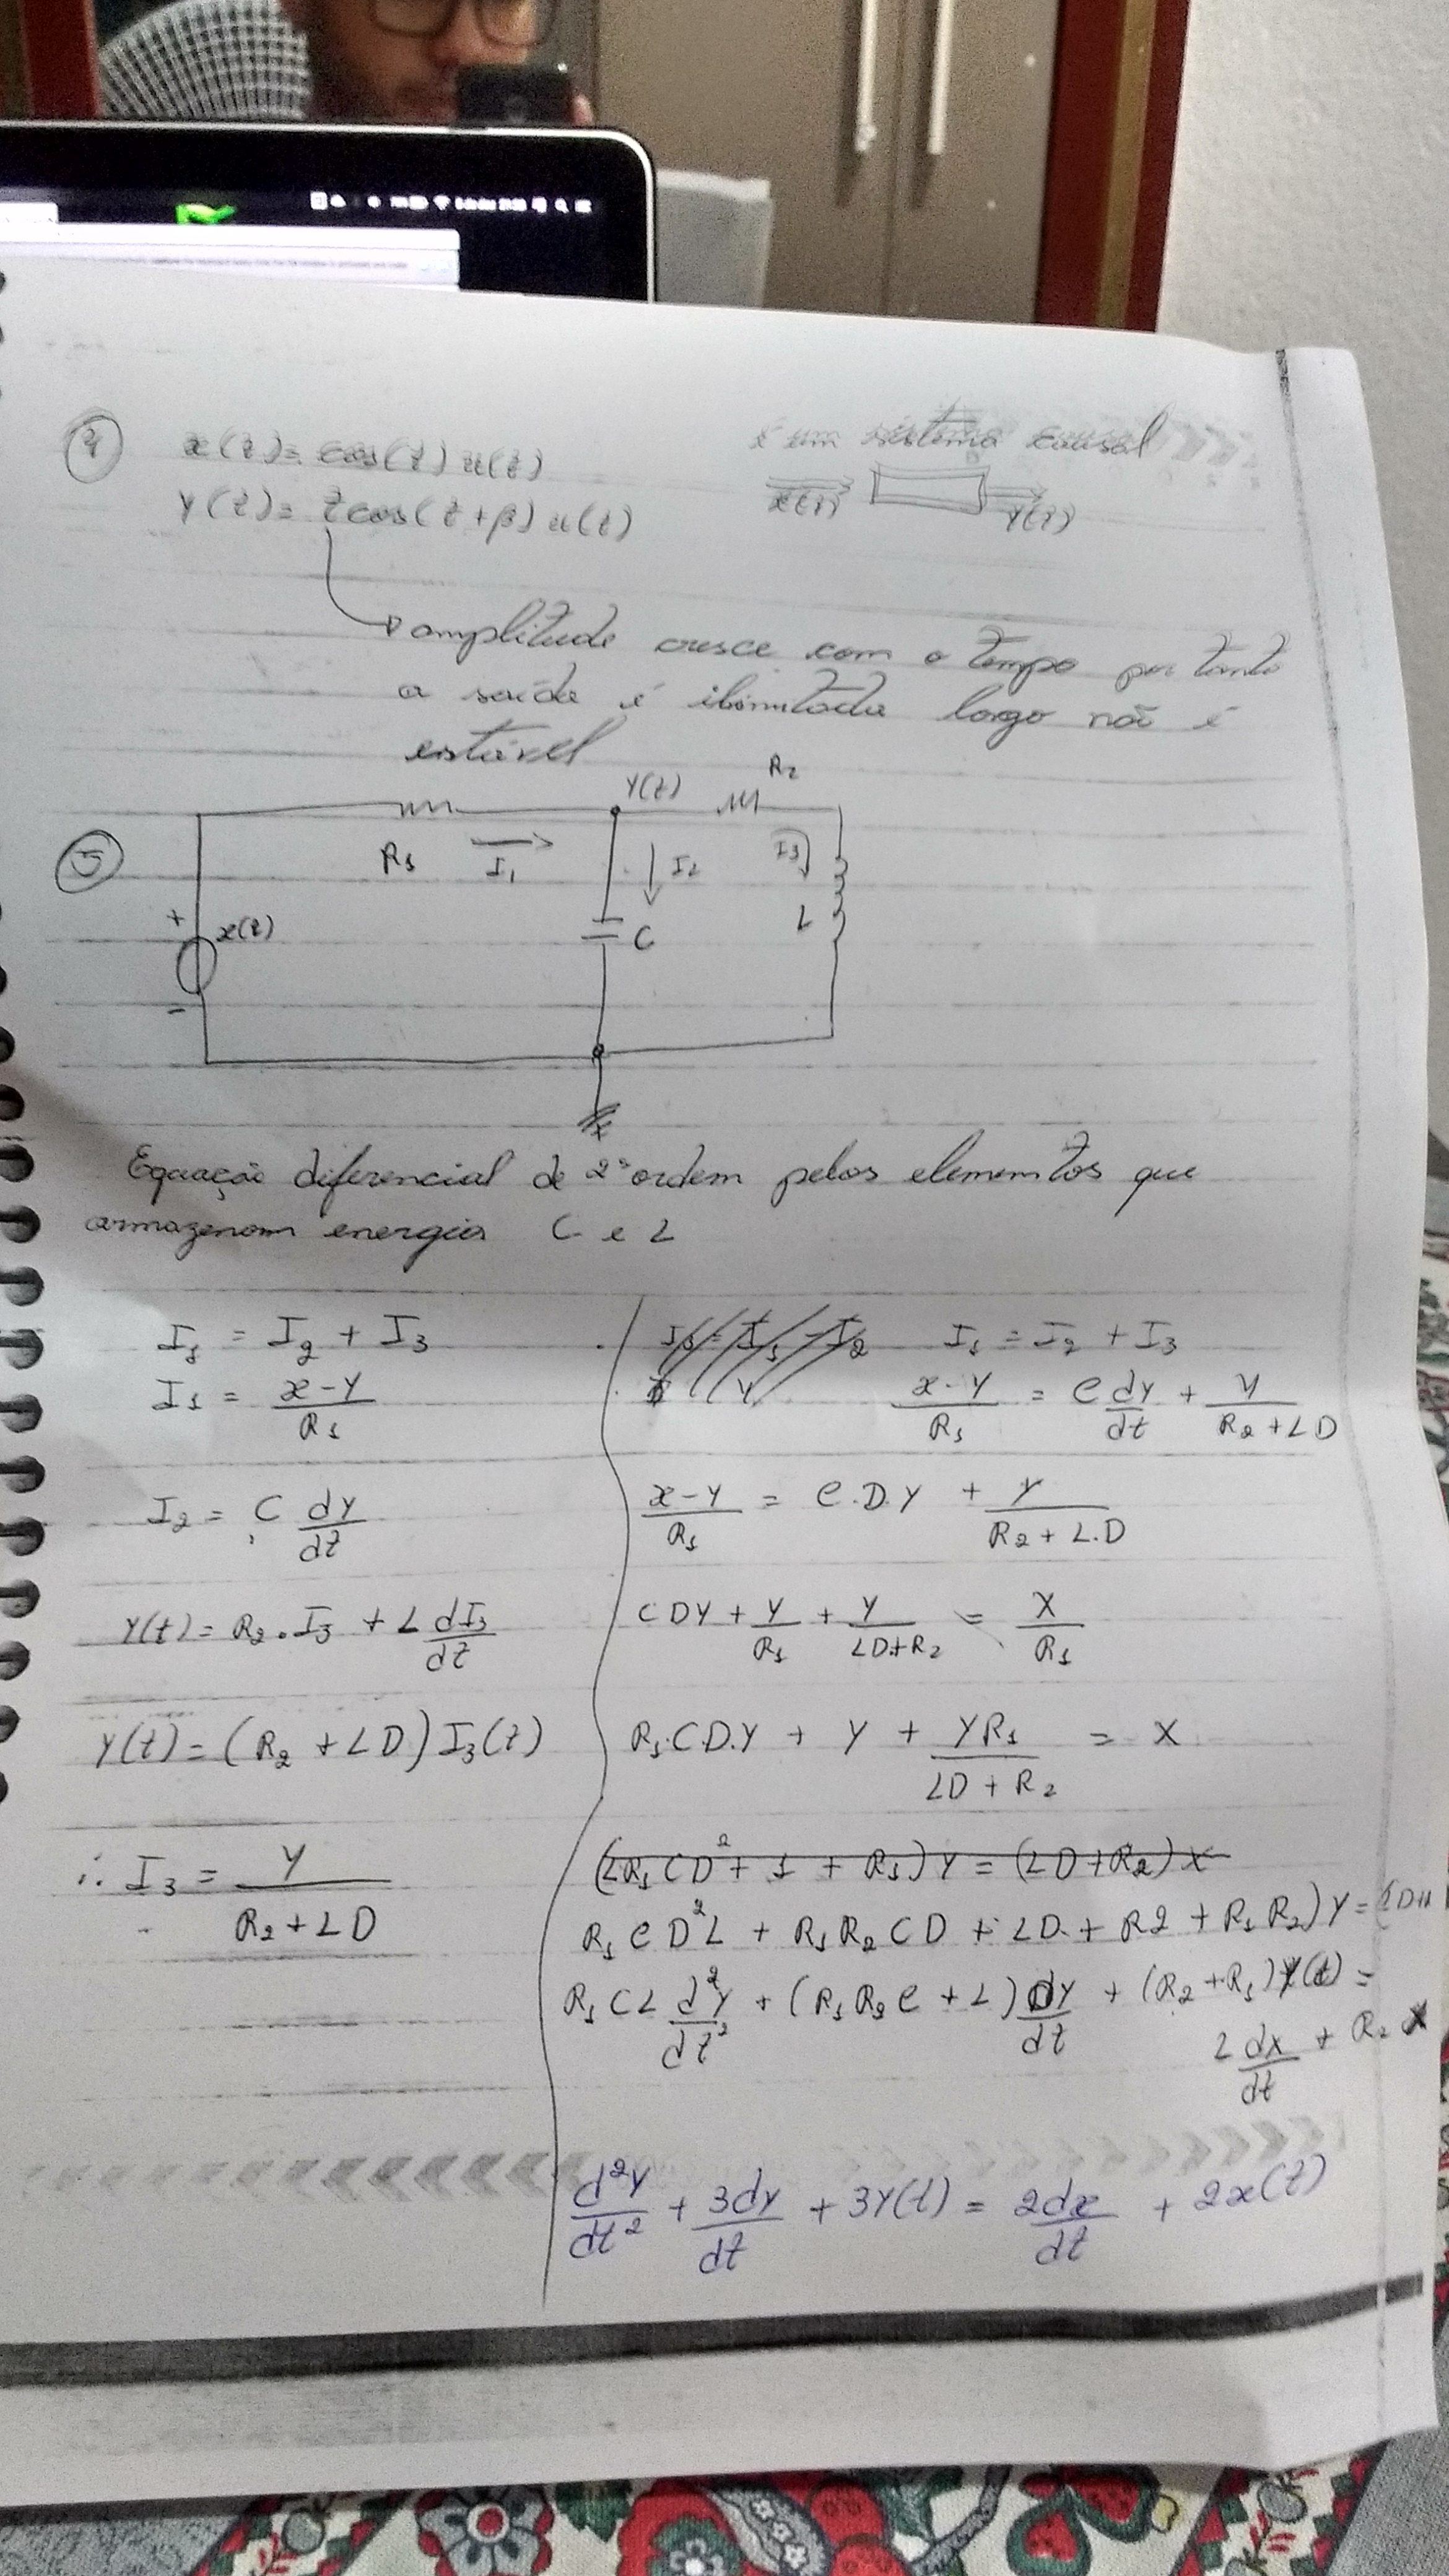 4
x(t) = cos(t) u(t)
y(t) = t cos(t+β) u(t)
é um sistema causal
x(t) y(t)
amplitude cresce com o tempo por tanto
a saída é ilimitada logo não é
estável
5
Y(t) R2
R1 I1 I2 I3
+ x(t) C L
-
Equação diferencial de 2ª ordem pelos elementos que
armazenam energia C e L
I1 = I2 + I3
I1 = (x-y)/R1
I2 = C dy/dt
Y(t) = R2 . I3 + L dI3/dt
Y(t) = (R2 + LD) I3(t)
∴ I3 = Y/(R2 + LD)
I3 = I1 - I2 I1 = I2 + I3
(x-y)/R1 = C dy/dt + y/(R2 + LD)
(x-y)/R1 = C.D.Y + Y/(R2 + L.D)
CDY + Y/R1 + Y/(LD+R2) = X/R1
R1.C.D.Y + Y + YR1/(LD + R2) = X
(LR1CD² + 1 + R1)Y = (LD+R2)X
R1CD²L + R1R2CD + LD + R2 + R1R2)Y =
R1CL d²Y/dt² + (R1R2C + L) dY/dt + (R2+R1)Y(t) =
L dx/dt + R2 X
d²Y/dt² + 3dy/dt + 3Y(t) = 2dx/dt + 2x(t)